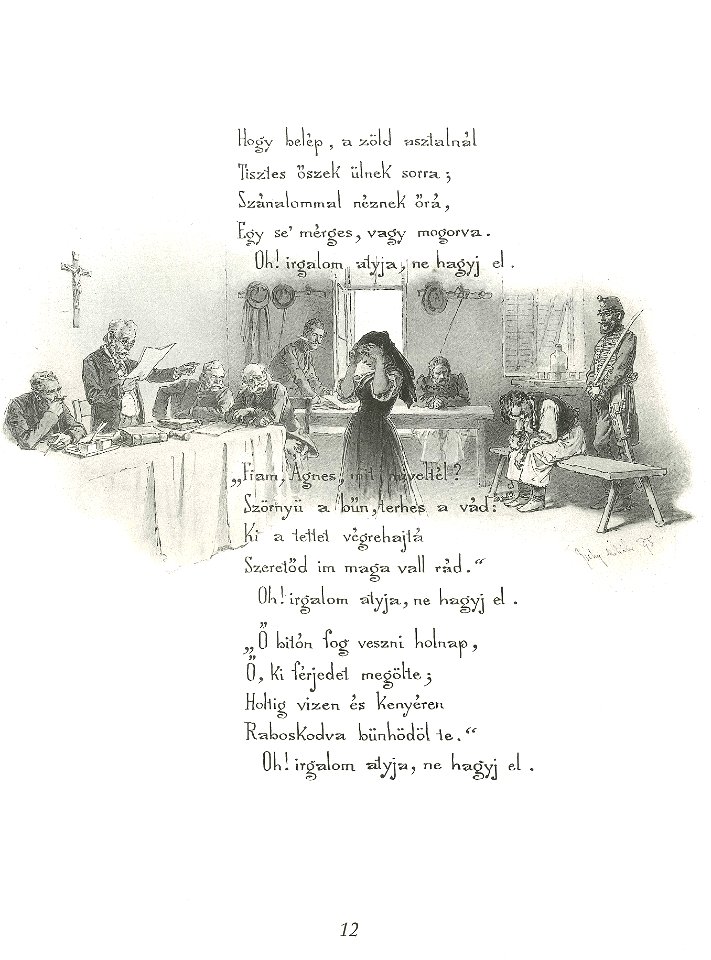 Hogy belép, a zöld asztalnál
Tisztes őszek ülnek sorra;
Szánalommal néznek őrá,
Egy se' mérges, vagy mogorva.
Oh! irgalom atyja, ne hagyj el.
„Fiam, Ágnes, mit miveltél?
Szörnyü a bün, terhes a vád:
Ki a tettet végrehajtá
Szeretőd im maga vall rád.“
Oh! irgalom atyja, ne hagyj el.
„Ő bitón fog veszni holnap,
Ő, ki férjedet megölte;
Holtig vizen és kenyéren
Raboskodva bünhödöl te.“
Oh! irgalom atyja, ne hagyj el.
12